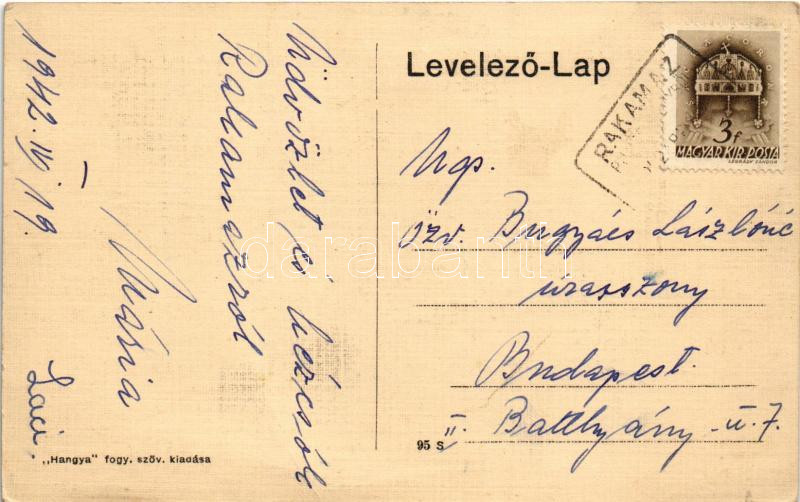 1942. IV. 19.
Üdvözlet
Rakamazról
Mária
Laci.
„Hangya” fogy. szöv. kiadása
Levelező-Lap
RAKAMAZ
3f
MAGYAR KIR. POSTA
LÉGRÁDY SÁNDOR
Ngs.
özv. Bugyács Lászlóné
úrasszony
Budapest.
II. Batthyány-u. 7.
95 S
darabanth